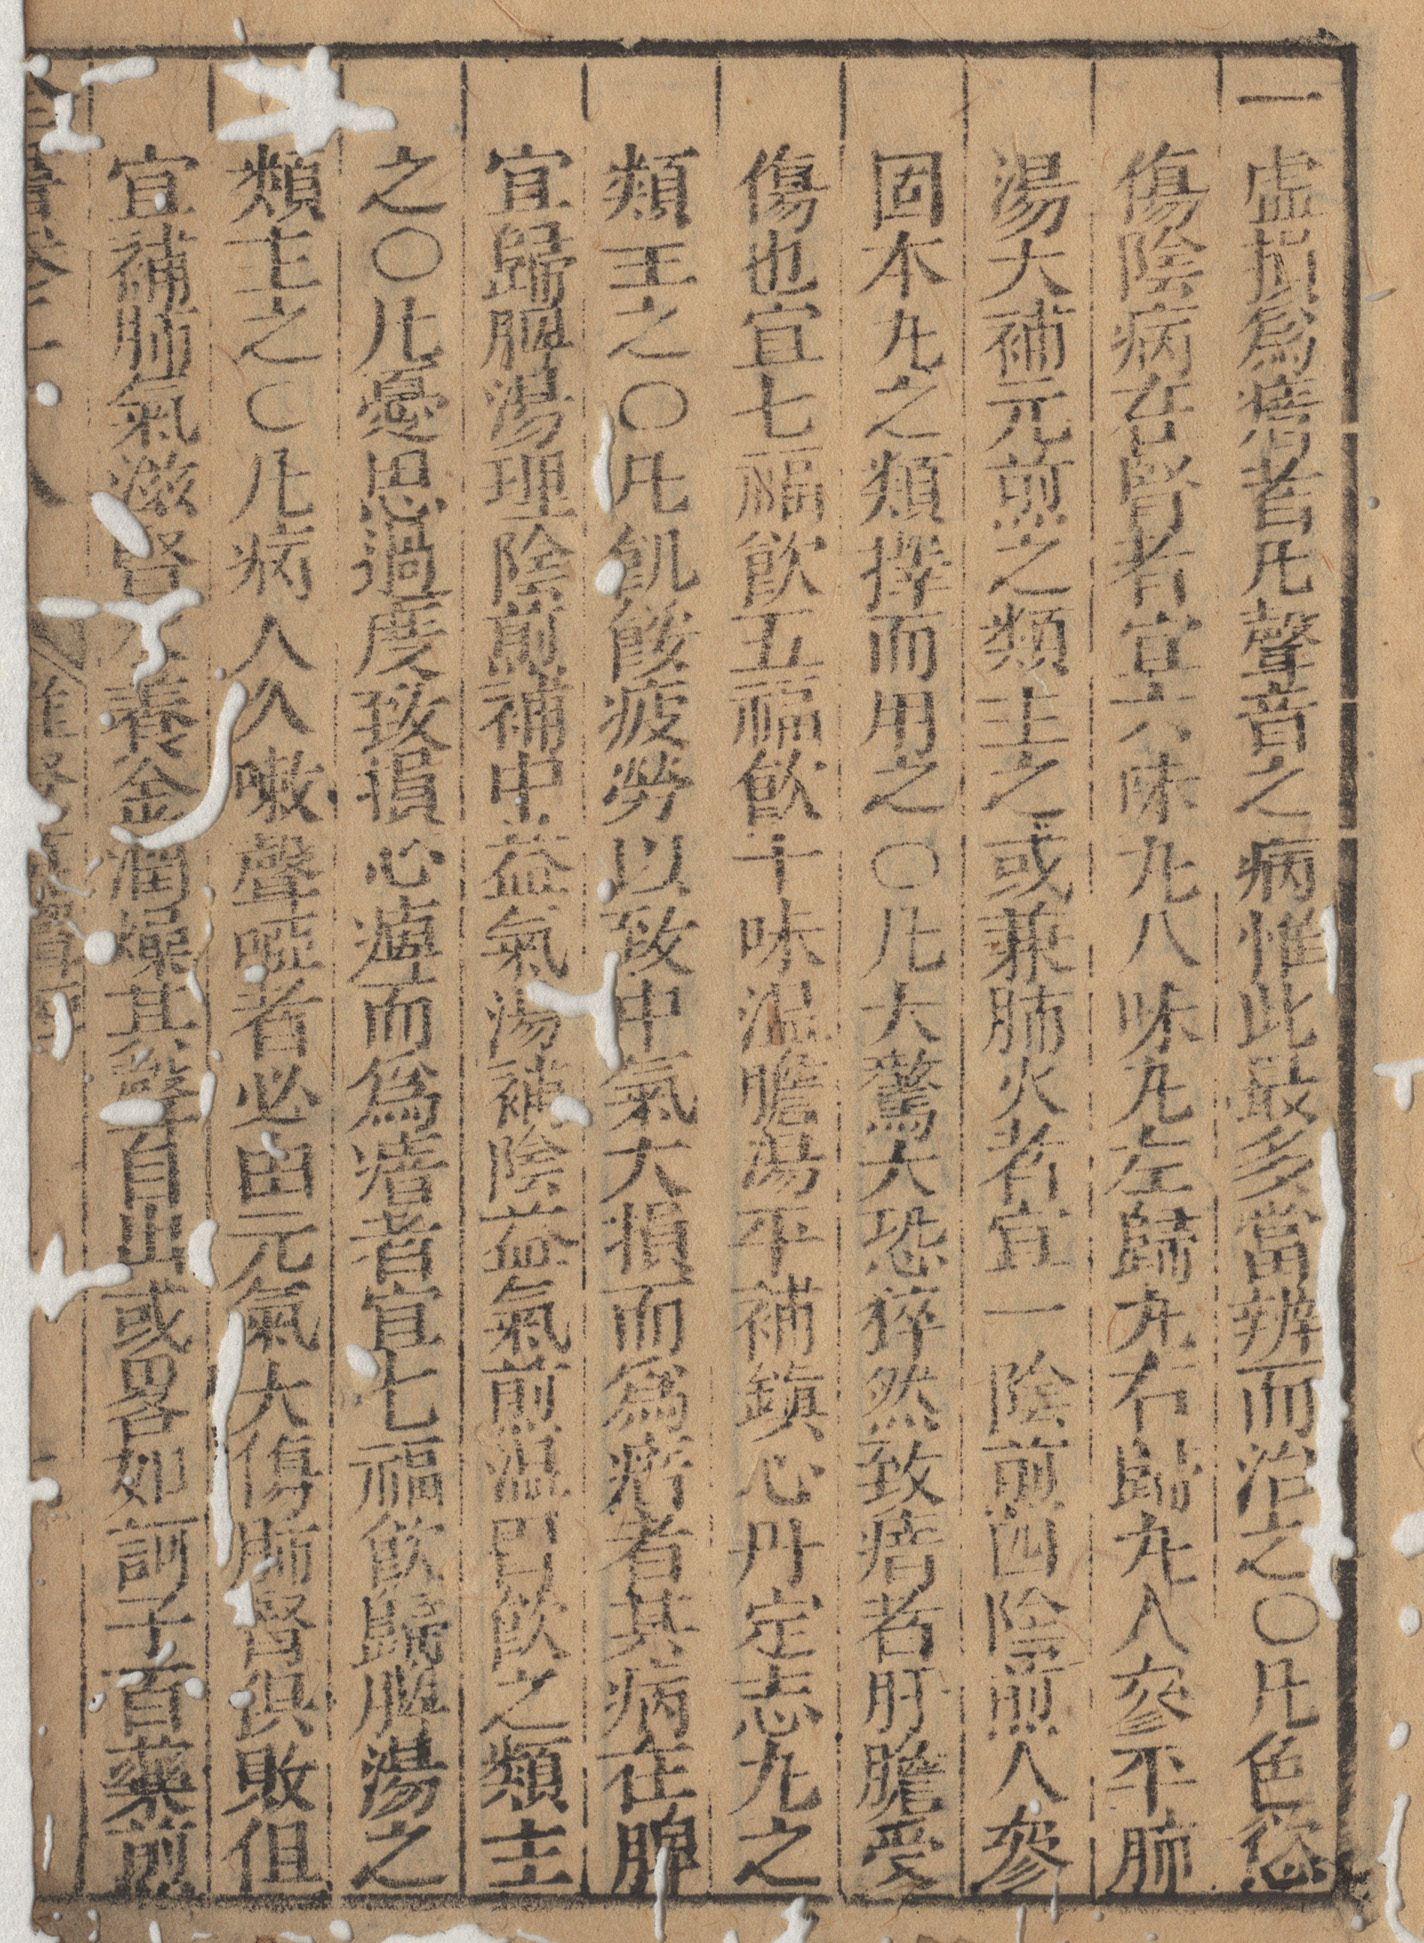 一虛損爲瘖者凡聲音之病惟此最多當辨而治之○凡色慾
傷陰病在腎者宜六味丸八味丸左歸丸右歸丸人參平肺
湯大補元煎之類主之或兼肺火者宜一陰煎四陰煎人參
固本丸之類擇而用之○凡大驚大恐猝然致瘖者肝膽受
傷也宜七福飲五福飲十味溫膽湯平補鎭心丹定志丸之
類主之○凡飢餒疲勞以致中氣大損而爲瘖者其病在脾
宜歸脾湯理陰煎補中益氣湯補陰益氣煎溫胃飲之類主
之○凡憂思過度致損心脾而爲瘖者宜七福飲歸脾湯之
類主之○凡病人久嗽聲啞者必由元氣大傷肺腎俱敗但
宜補肺氣滋腎水養金潤燥其聲自出或畧如訶子百藥煎